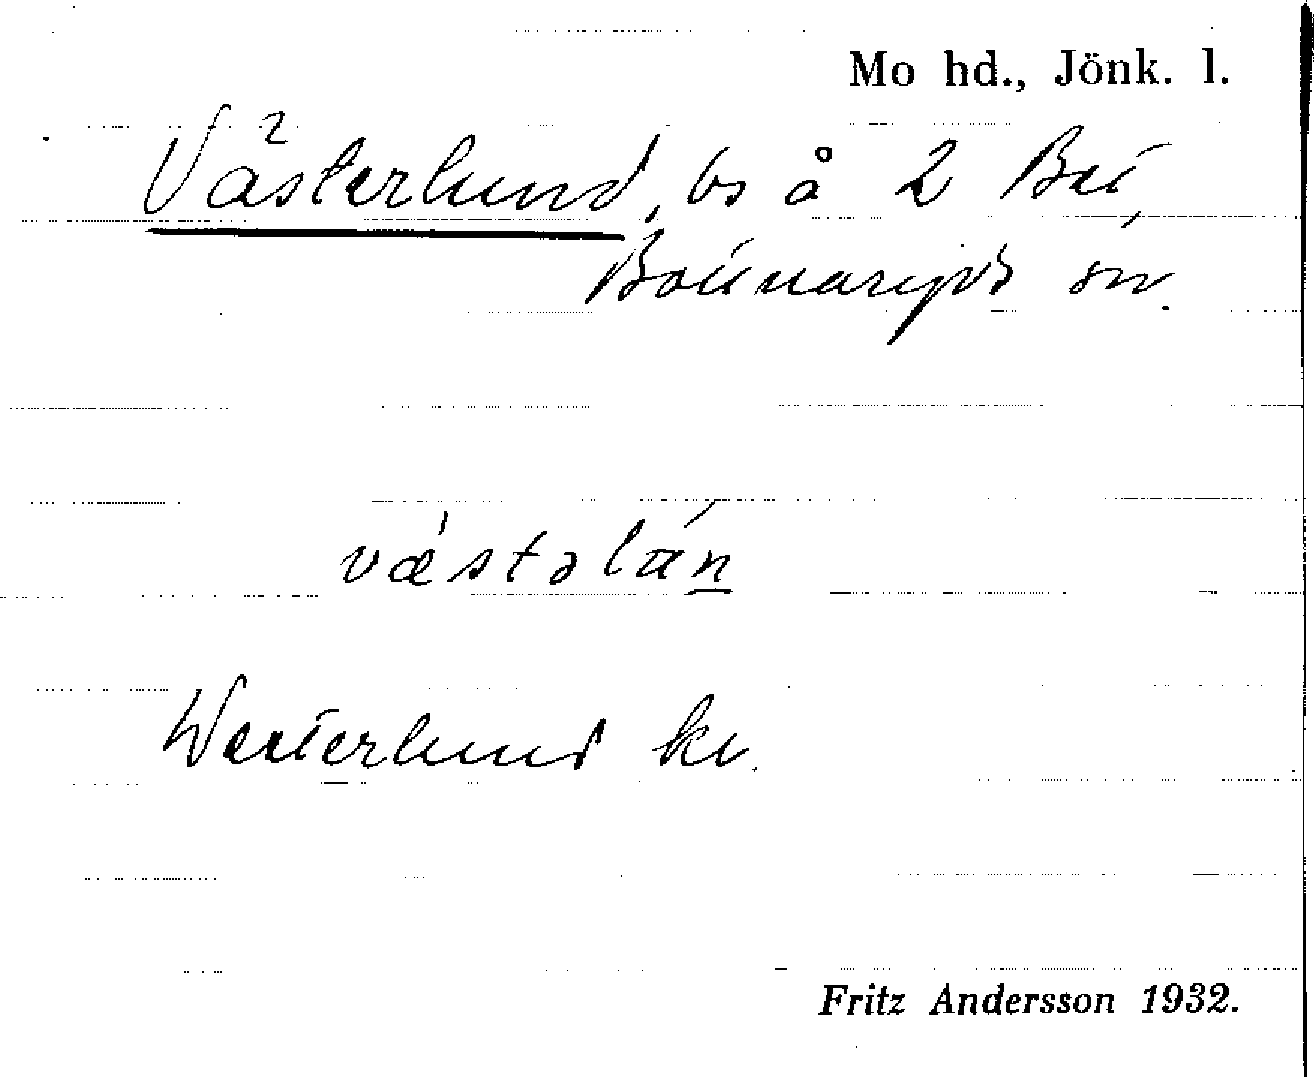 Mo hd., Jönk. l.
Västerlund, bs å 2
Bottnaryds sn.
væ̍stəlán
Westerlund kv.
Fritz Andersson 1932.